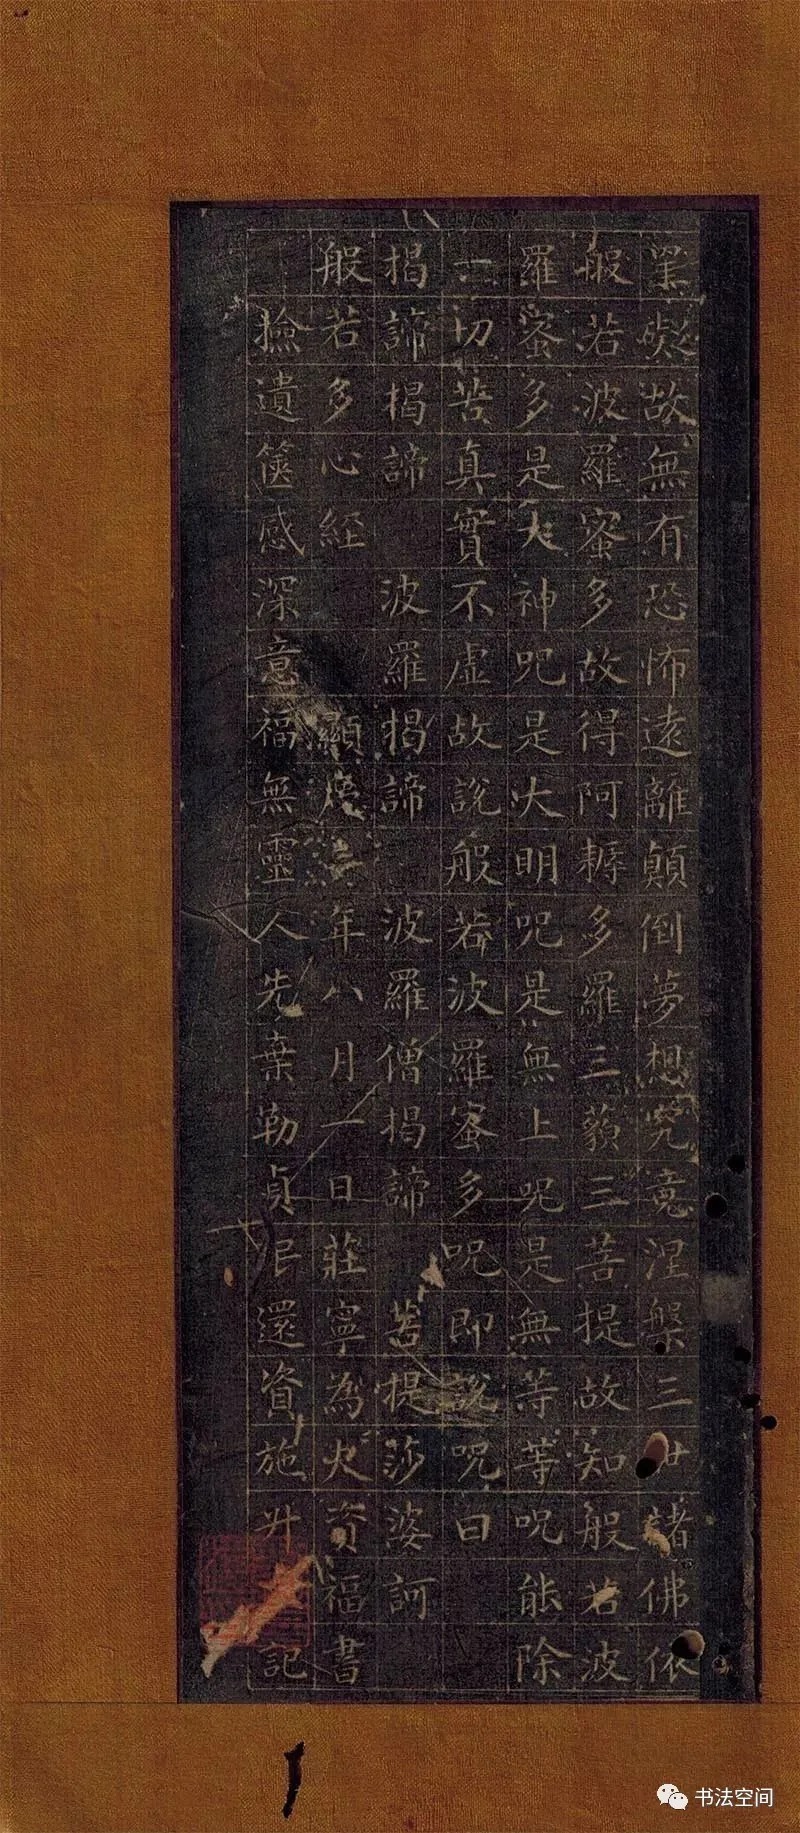 罣礙故無有恐怖遠離顛倒夢想究竟涅槃三世諸佛依
般若波羅蜜多故得阿耨多羅三藐三菩提故知般若波
羅蜜多是大神呪是大明呪是無上呪是無等等呪能除
一切苦真實不虛故說般若波羅蜜多呪即說呪曰
揭諦揭諦 波羅揭諦 波羅僧揭諦 菩提莎婆訶
般若多心經 顯年八月一日莊寧為大資福書
撿遺篋感深意福無靈人先棄勒貞還資施記
书法空间